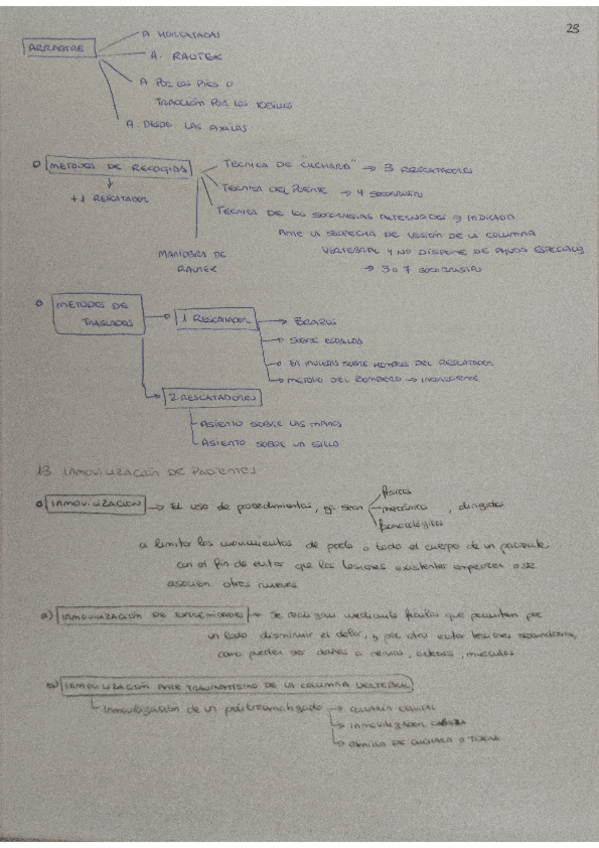 23
ARRASTRE
A HORCAJADAS
A. RAUTEK
A POR LOS PIES O
TRACCIÓN POR LOS TOBILLOS
A. DESDE LAS AXILAS
METODOS DE RECOGIDA
+1 RESCATADOR
TECNICA DE "CUCHARA" → 3 RESCATADORES
TECNICA DEL PUENTE → 4 SOCORRISTAS
TECNICA DE LOS SOCORRISTAS ALTERNADOS → INDICADA
ANTE LA SOSPECHA DE LESIÓN DE LA COLUMNA
VERTEBRAL Y NO DISPONE DE AYUDA ESPECIALIZ
→ 5 o 7 SOCORRISTAS
MANIOBRA DE
RAUTEK
METODOS DE
TRASLADOS
1 RESCATADOR
BRAZOS
SOBRE
EN MULETAS SOBRE HOMBROS DEL RESCATADOR
METODO DEL BOMBERO → INCONSCIENTE
2 RESCATADORES
ASIENTO SOBRE LAS MANOS
ASIENTO SOBRE UN SILLO
13. INMOVILIZACIÓN DE PACIENTES
INMOVILIZACION → El uso de procedimientos, ya sean físicos
mecánicos, dirigidos
farmacológicos
a limitar los movimientos de parte o todo el cuerpo de un paciente,
con el fin de evitar que las lesiones existentes empeoren o se
asocien otras nuevas
a) INMOVILIZACIÓN DE EXTREMIDADES → Se realizan mediante férulas que permiten por
un lado disminuir el dolor, y por otro evitar lesiones secundarias,
como pueden ser daños a nervios, arterias, musculos
b) INMOVILIZACIÓN ANTE TRAUMATISMO DE LA COLUMNA VERTEBRAL
Inmovilización de un politraumatizado → COLLARÍN CERVICAL
→ INMOVILIZADOR CABEZA
→ CAMILLA DE CUCHARA O TIJERA